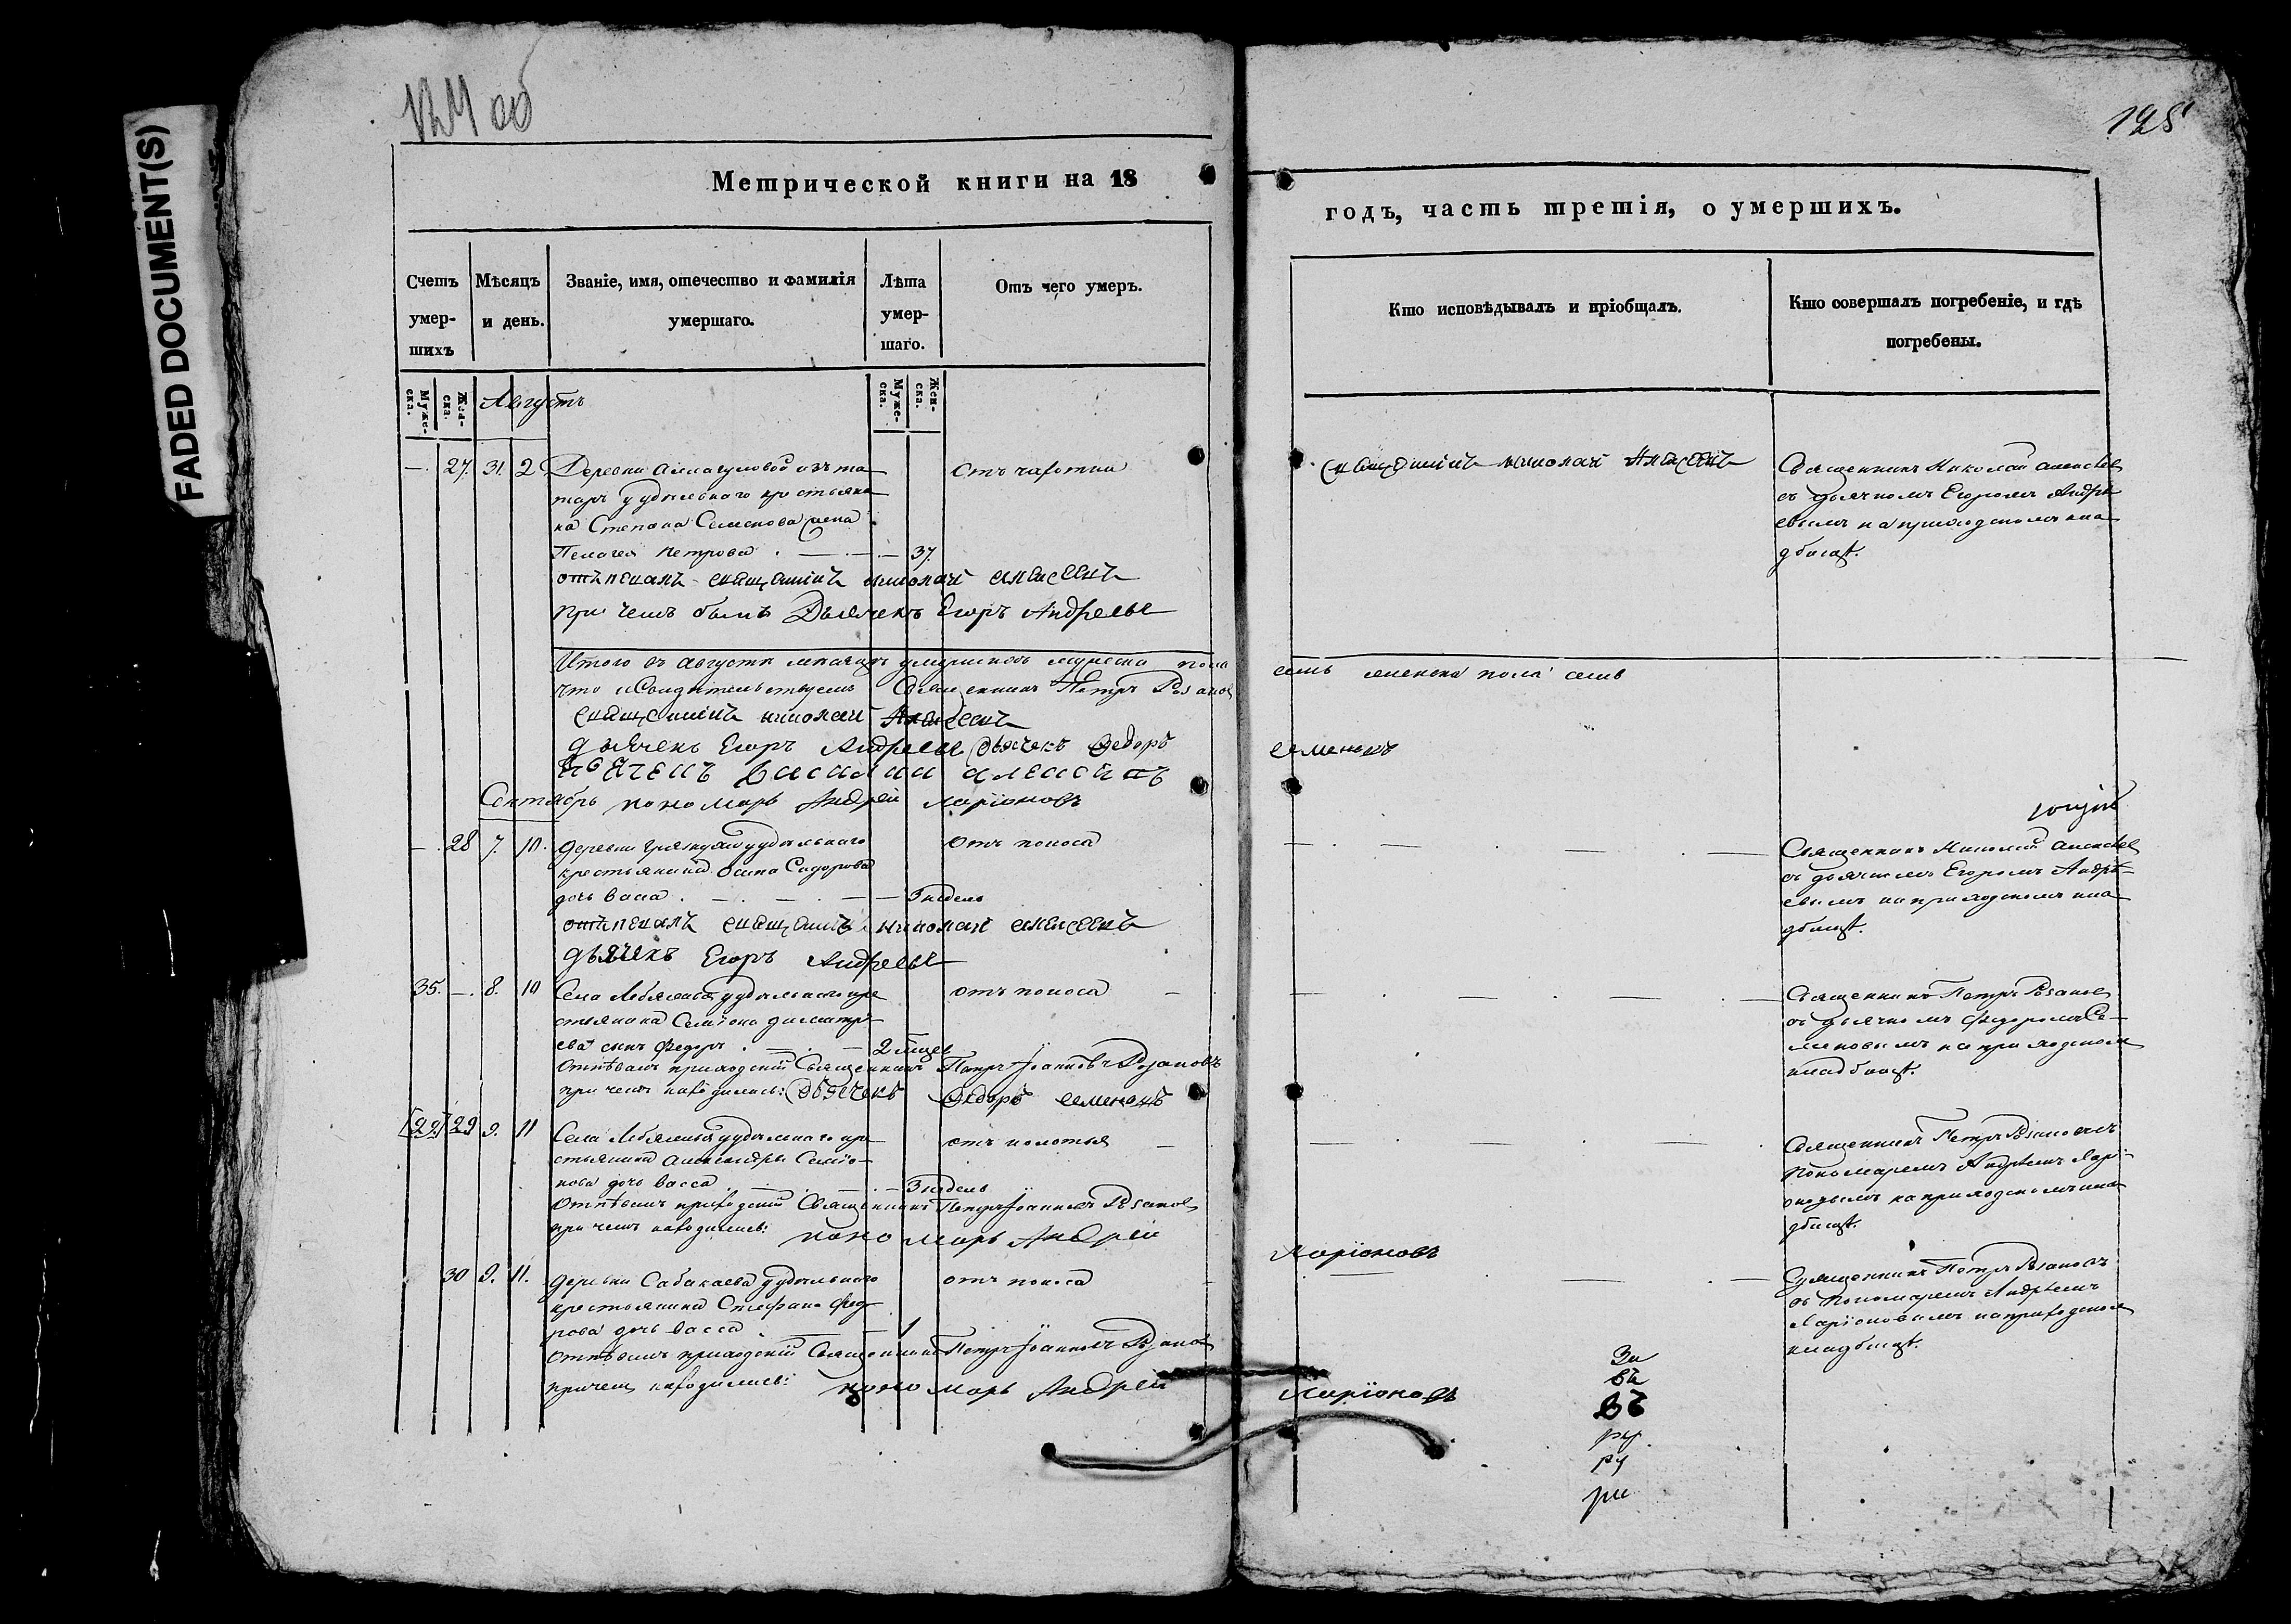 FADED DOCUMENT(S)
124 об
125
Метрической книги на 18
годъ, часть третія, о умершихъ.
Счетъ умер-шихъ
Мѣсяцъ и день.
Званіе, имя, отечество и фамилія умершаго.
Лѣта умер-шаго.
Отъ чего умеръ.
Кто исповѣдывалъ и пріобщалъ.
Кто совершалъ погребеніе, и гдѣ погребены.
Муже-ска.
Жен-ска.
Муже-ска.
Жен-ска.
Августъ
— 27. 31. 2 Деревни изъ та
таръ удѣльнаго крестьяни
на Степана Семенова жена
Пелагея Петрова 37.
отъ чахотки
священникъ николай Алексеевъ
Священникъ Николай Алексѣев
съ дьячкомъ Егоромъ Андрѣ
евымъ на приходскомъ кла
дбищѣ.
отъпевалъ священникъ николай алексеевъ
при чемъ былъ Дьячекъ Егоръ Андреевъ
Итого въ августѣ месяцѣ умершихъ мужска пола
семь женска пола семь
что и Свидетельствуемъ Священникъ Петръ Розанов
священникъ николай Алексеевъ
дьячекъ Егоръ Андреевъ дьячекъ Федоръ
семеновъ
дьячекъ Василий алексеевъ
Сентябрь пономарь Андрей Ларіоновъ
— 28 7. 10. деревни удѣльнаго
крестьянина Осипа Сидорова
дочь Васса 3 недель
отъ поноса
Священникъ Николай Алексѣев
съ дьячкомъ Егоромъ Андрѣ-
евымъ на приходскомъ кла
дбищѣ.
отъпевалъ священникъ николай алексеевъ
дьячекъ Егоръ Андреевъ
35. — 8. 10 Села Лебяжья удѣльнаго кре
стьянина Семіона Димитрі
ева сынъ Федоръ 2 мѣсец
отъ поноса
Священникъ Петръ Розанов
съ дьячкомъ Федоромъ Се-
меновымъ на приходском
кладбищѣ.
Отпѣвалъ приходскій Священникъ Петръ Іоанновъ Розановъ
при чемъ находились: дьячекъ Федоръ семеновъ
[22] 29 9. 11 Села Лебяжья удѣльнаго кре
стьянина Александра Семіо-
нова дочь Васса 3 недель
отъ колотья
Священникъ Петръ Розановъ съ
Пономаремъ Андрѣемъ Ларі-
оновымъ на приходскомъ кла
дбищѣ.
Отпѣвалъ приходскій Священникъ Петръ Іоанновъ Розанов
при чемъ находились: пономарь Андрей
Ларіоновъ
30 9. 11. деревни Сабакаева удѣльнаго
крестьянина Стефана Федо
рова дочь Васса 1
отъ поноса
Священникъ Петръ Розановъ
съ Пономаремъ Андрѣемъ
Ларіоновымъ на приходском
кладбищѣ.
Отпѣвалъ приходскій Священникъ Петръ Іоанновъ Розанов
при чемъ находились: пономарь Андрей
Ларіоновъ